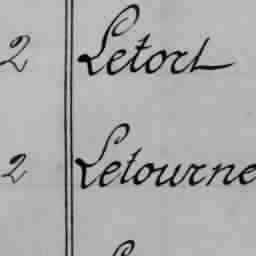 2 Letort
2 Letourne